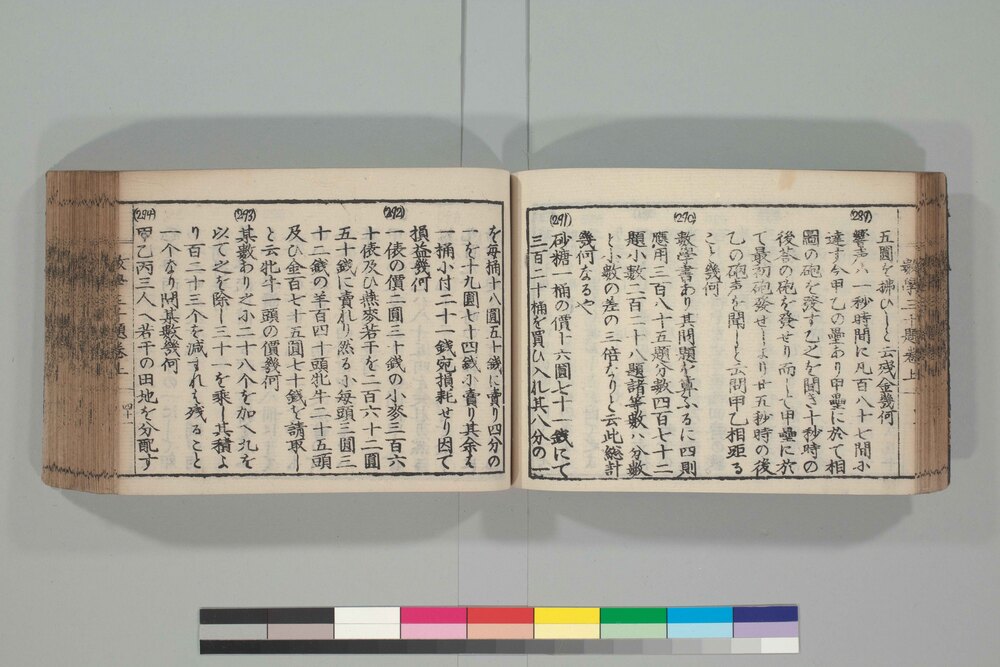 五圓を拂ひしと云残金幾何
(289)
響声ハ一秒時間に凡百八十七間小
達す今甲乙の壘あり甲壘に於て相
圖の砲を発す乙之を聞き十秒時の
後答の砲を発せり而して甲壘に於
て最初砲発せしより廿五秒時の後
乙の砲声を聞しと云問甲乙相距る
こと幾何
(290)
数學書あり其問題を算ふるに四則
應用三百八十五題分数四百七十二
題小数二百二十八題諸等数ハ分数
と小数の差の三倍なりと云此総計
幾何なるや
(291)
砂糖一桶の價十六圓七十一銭にて
三百二十桶を買ひ入れ其八分の一
を毎桶十八圓五十銭に賣り四分の
一を十九圓七十四銭小賣り其余ハ
一桶小付二十一銭宛損耗せり因て
損益幾何
(292)
一俵の價二圓三十銭の小麥三百六
十俵及ひ燕麥若干を二百六十二圓
五十銭に賣れり然る小毎頭三圓三
十二銭の羊百四十頭牝牛二十五頭
及ひ金百七十五圓七十銭を請取し
と云牝牛一頭の價幾何
(293)
其数あり之小二十八个を加へ九を
以て之を除し三十一を乗し其積よ
り百二十三个を減すれハ残ること
一个なり問其数幾何
(294)
甲乙丙三人へ若干の田地を分配す